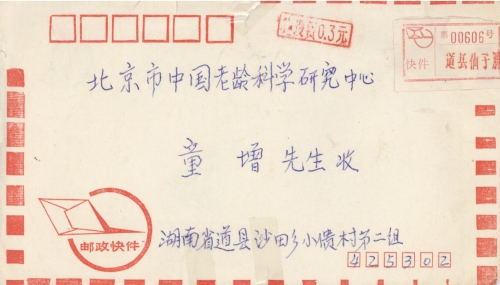 0.3元
第00606号
快件 道县仙子脚
北京市中国老龄科学研究中心
童增先生收
邮政快件
湖南省道县沙田乡小
村第二组
425302